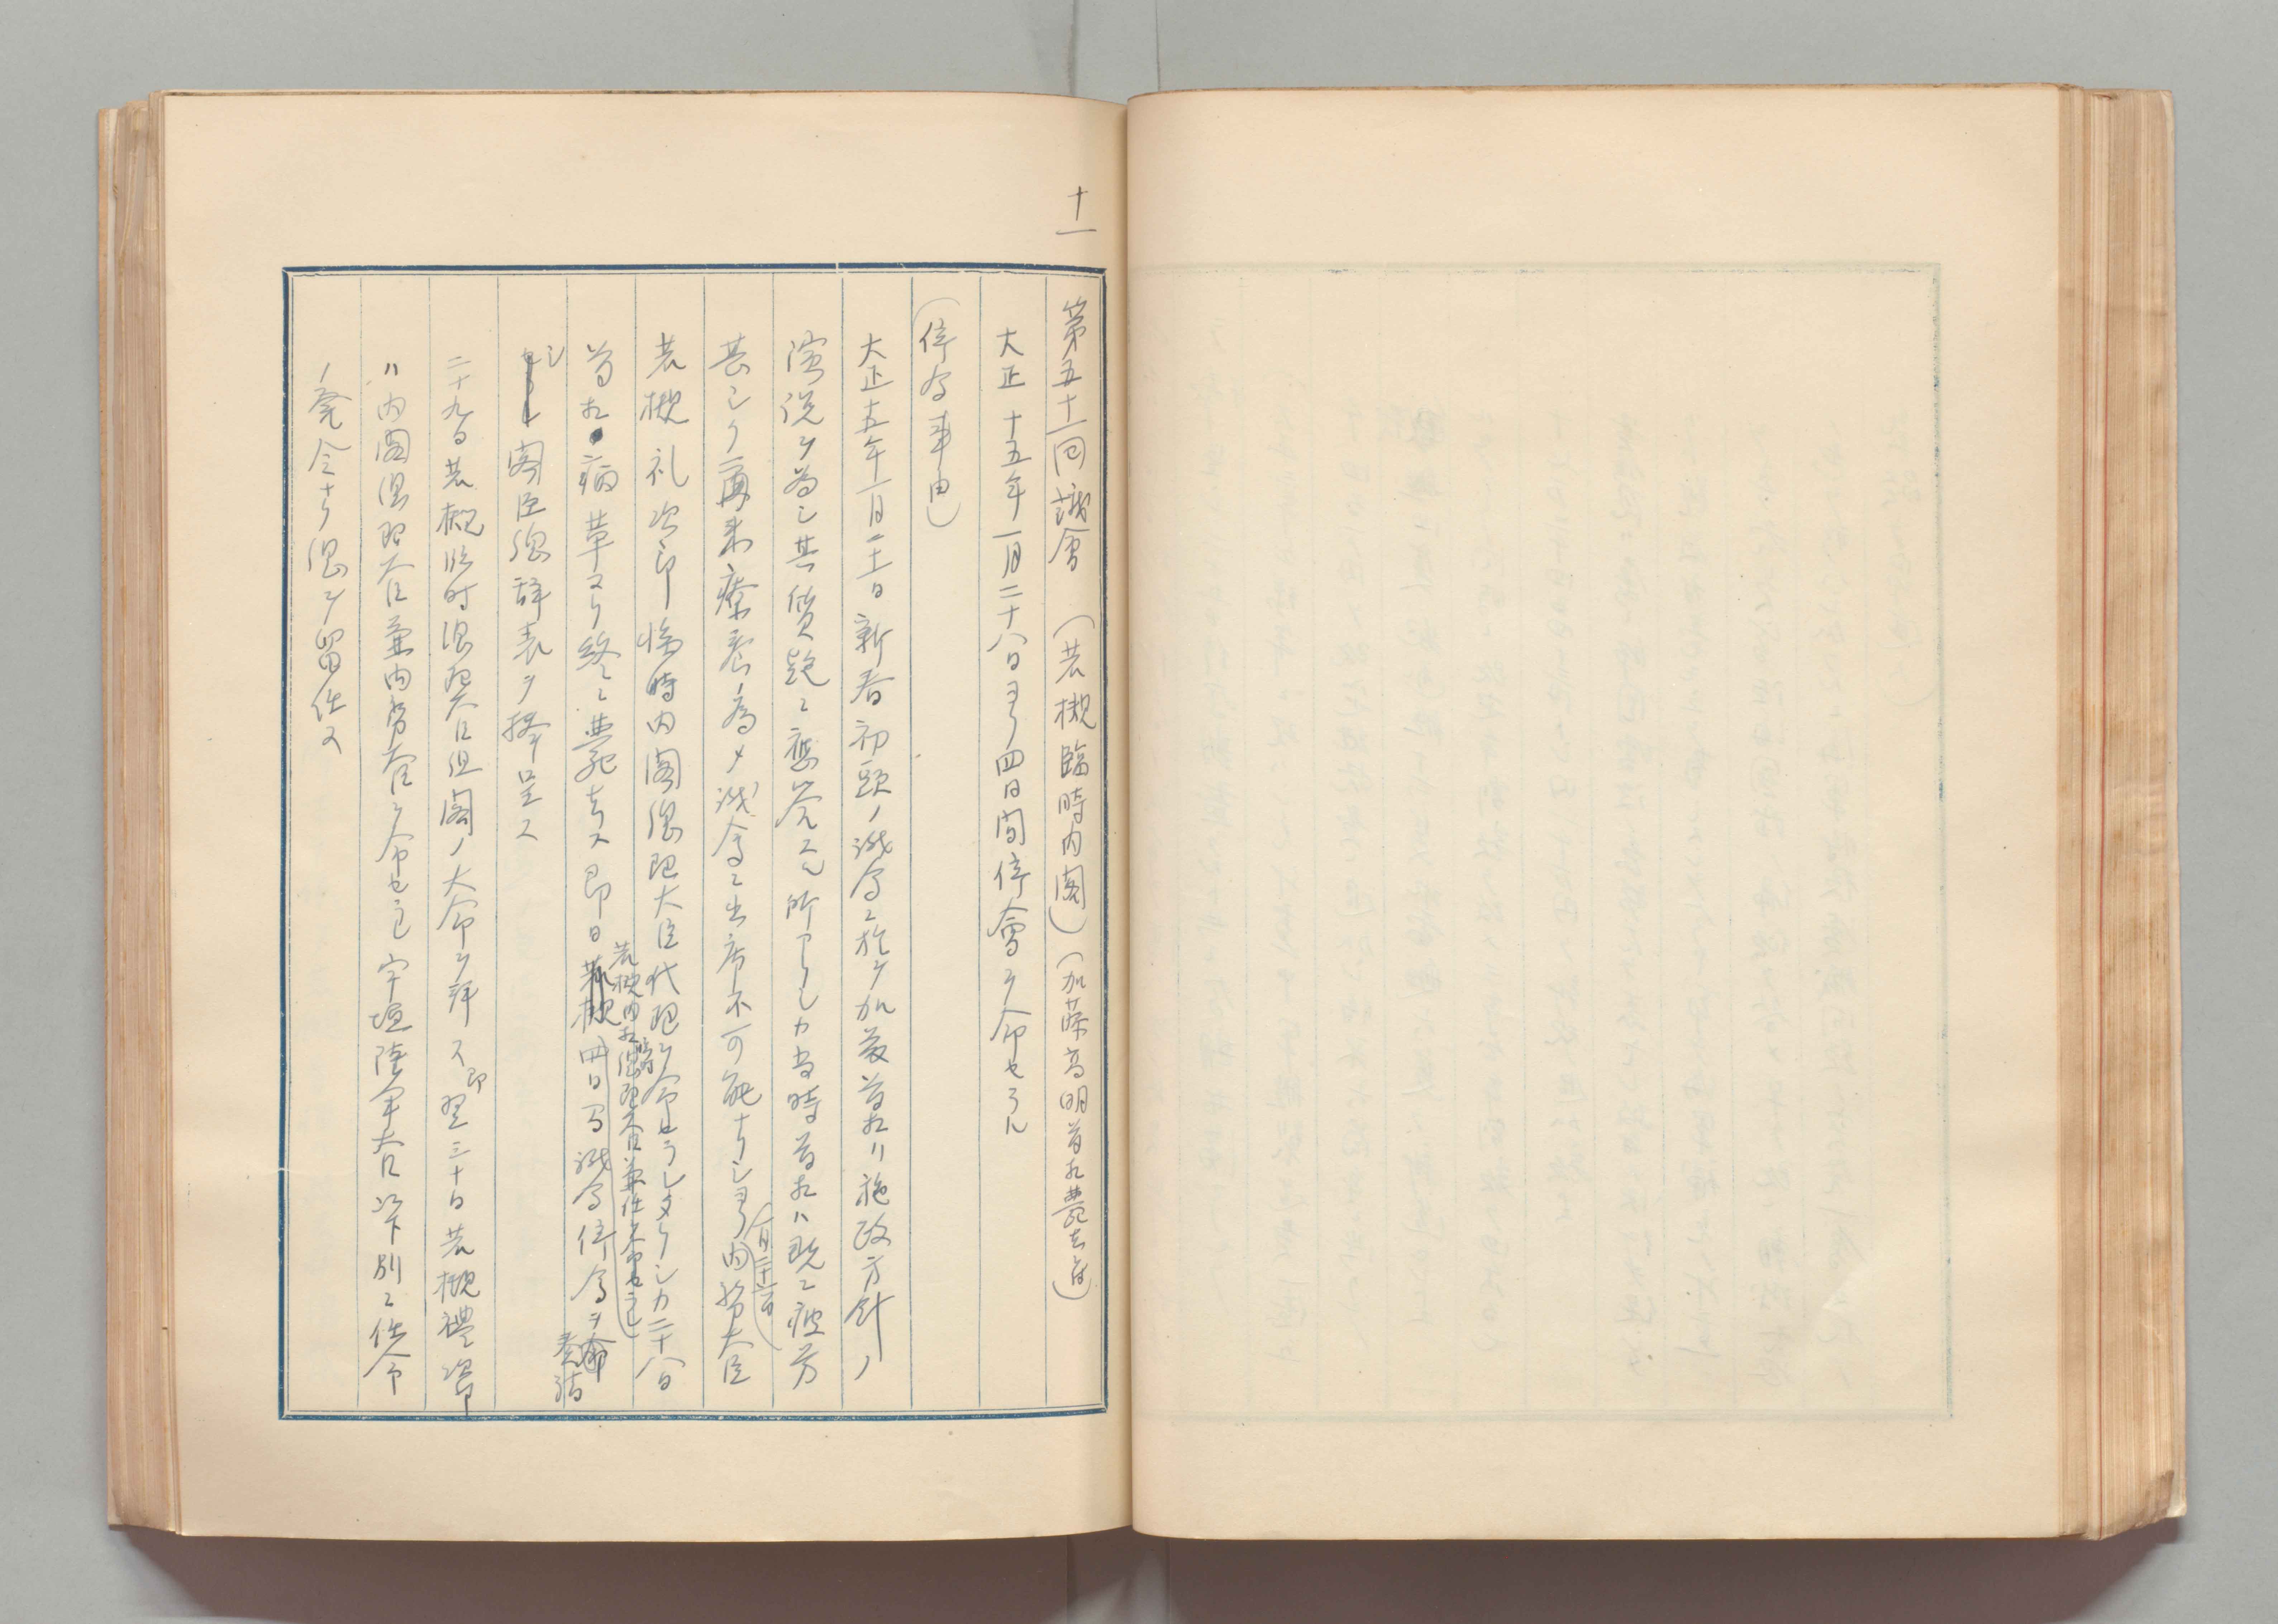 十一
第五十一回議會 (若槻臨時内閣)(加藤高明首相薨去ニ付)
大正十五年一月二十八日ヨリ四日間停會ヲ命セラル
(停会事由)
大正十五年一月二十一日新春初頭ノ議会ニ於テ加藤首相ハ施政方針ノ
演説ヲ為シ其質疑ニ應答スル所アリシカ当時首相ハ既ニ疲労
甚シク爾来療養ノ為メ議会ニ出席不可能ナリシヨリ(一月二十六日)内務大臣
若槻礼次郎臨時内閣総理大臣代理ヲ命セラレタリシカ二十八日
首相病革マリ終ニ薨去ス即日若槻内相臨時総理大臣兼任ヲ命セラレ四日間議会停会ヲ奏請
シ閣臣総辞表ヲ捧呈ス
二十九日若槻臨時総理大臣組閣ノ大命ヲ拝ス即翌三十日若槻禮次郎
ハ内閣総理大臣兼内務大臣ヲ命セラレ宇垣陸軍大臣以下別ニ任命
ノ発令ナク総テ留任ス